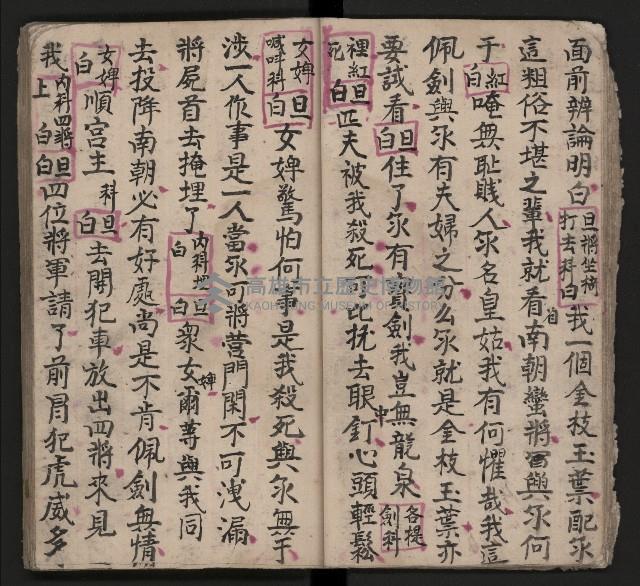 面前辨論明白旦將坐椅打去拜白我一個金枝玉葉配尔
這粗俗不堪之輩我就看南朝蠻將當與尔何
于紅白唵無耻賎人尔名皇姑我有何懼哉我這
佩劍與尔有夫婦之分么尔就是金枝玉葉亦
要試看旦白住了尔有寳劍我豈無龍泉各提劍科
裡紅死旦白匹夫被我殺死可比抚去眼中釘心頭輕鬆
女婢喊叫科旦白女婢驚怕何事是我殺死與尔無干
涉一人作事是一人當尔可將營門閑不可洩漏
將屍首去掩埋了內科埋白旦白衆女婢爾等與我同
去投降南朝必有好處尚是不肯佩劍無情
女婢白順宮主科旦白去開犯車放出四將來見
我內科四將上白旦白四位將軍請了前冐犯虎威多
高雄市立歷史博物館
KAOHSIUNG MUSEUM OF HISTORY